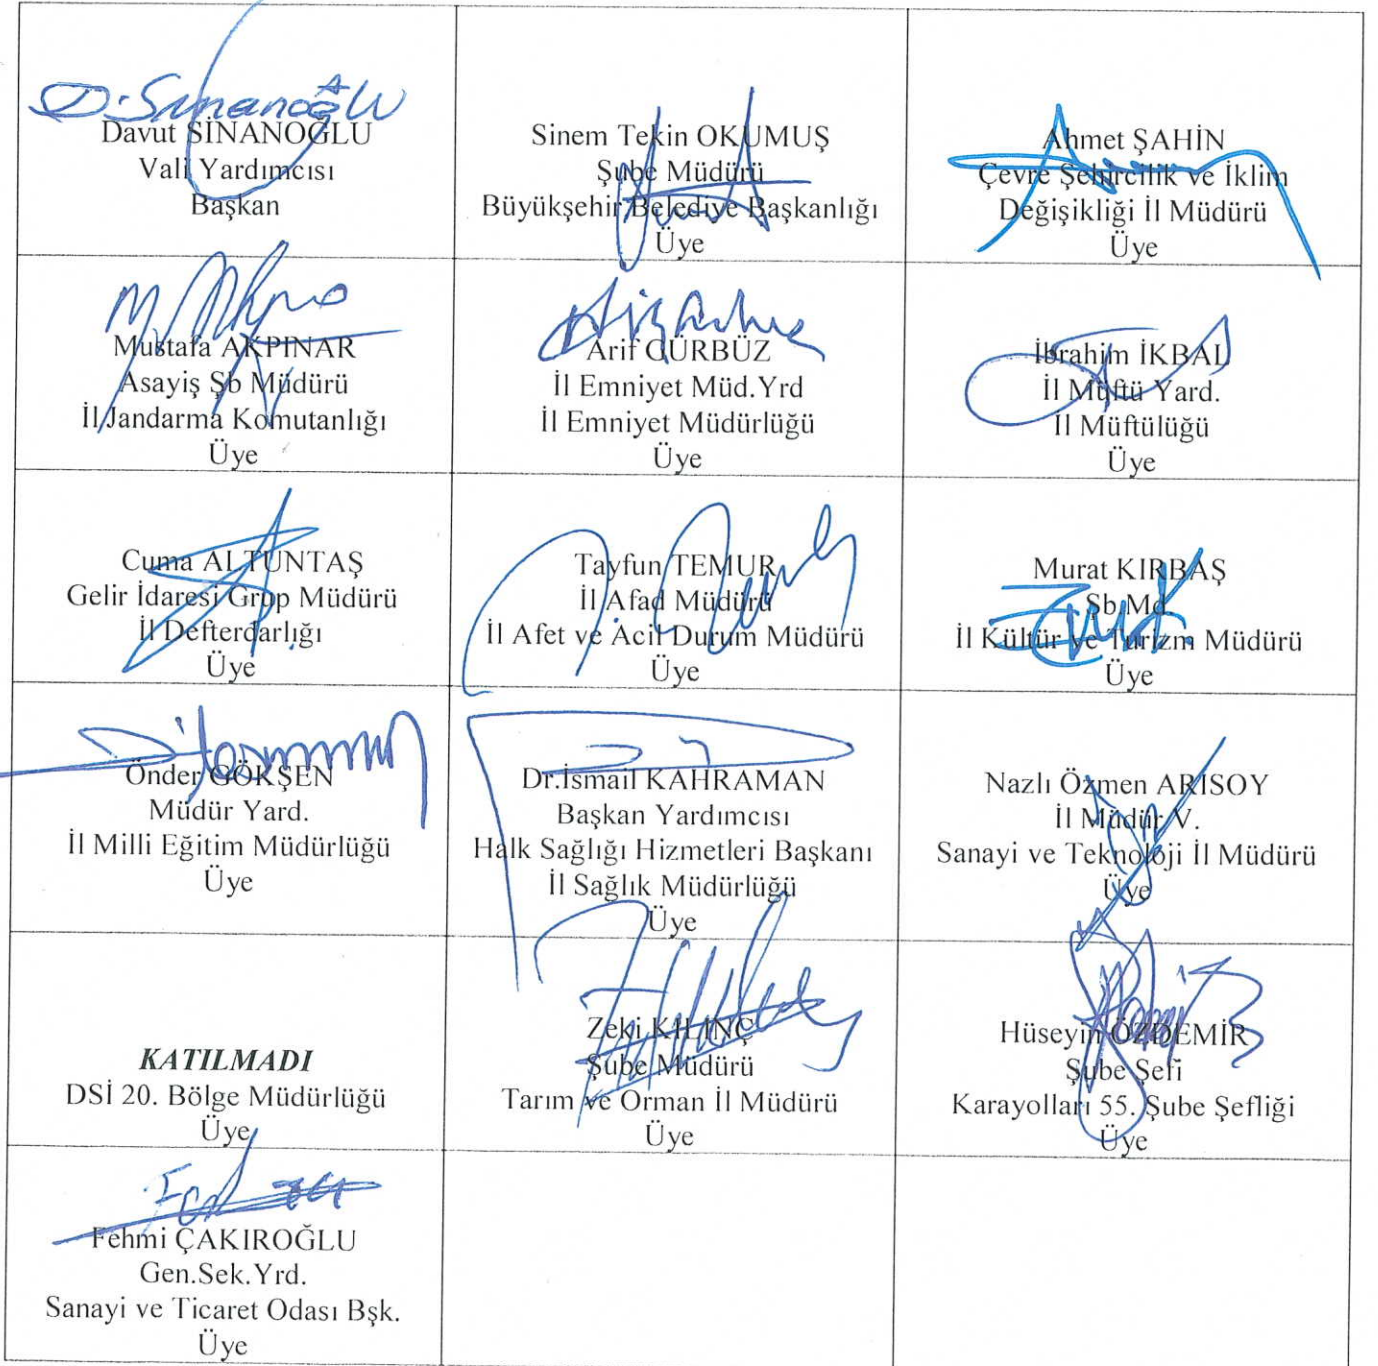 D. Sinanoğlu
Davut SİNANOĞLU
Vali Yardımcısı
Başkan
Sinem Tekin OKUMUŞ
Şube Müdürü
Büyükşehir Belediye Başkanlığı
Üye
Ahmet ŞAHİN
Çevre Şehircilik ve İklim
Değişikliği İl Müdürü
Üye
Mustafa AKPINAR
Asayiş Şb Müdürü
İl Jandarma Komutanlığı
Üye
Arif GÜRBÜZ
İl Emniyet Müd.Yrd
İl Emniyet Müdürlüğü
Üye
İbrahim İKBAL
İl Müftü Yard.
İl Müftülüğü
Üye
Cuma ALTUNTAŞ
Gelir İdaresi Grup Müdürü
İl Defterdarlığı
Üye
Tayfun TEMUR
İl Afad Müdürü
İl Afet ve Acil Durum Müdürü
Üye
Murat KIRBAŞ
Şb Md.
İl Kültür ve Turizm Müdürü
Üye
Önder GÖKŞEN
Müdür Yard.
İl Milli Eğitim Müdürlüğü
Üye
Dr.İsmail KAHRAMAN
Başkan Yardımcısı
Halk Sağlığı Hizmetleri Başkanı
İl Sağlık Müdürlüğü
Üye
Nazlı Özmen ARISOY
İl Müdür V.
Sanayi ve Teknoloji İl Müdürü
Üye
KATILMADI
DSİ 20. Bölge Müdürlüğü
Üye
Zeki KILINÇ
Şube Müdürü
Tarım ve Orman İl Müdürü
Üye
Hüseyin ÖZDEMİR
Şube Şefi
Karayolları 55. Şube Şefliği
Üye
Fehmi ÇAKIROĞLU
Gen.Sek.Yrd.
Sanayi ve Ticaret Odası Bşk.
Üye